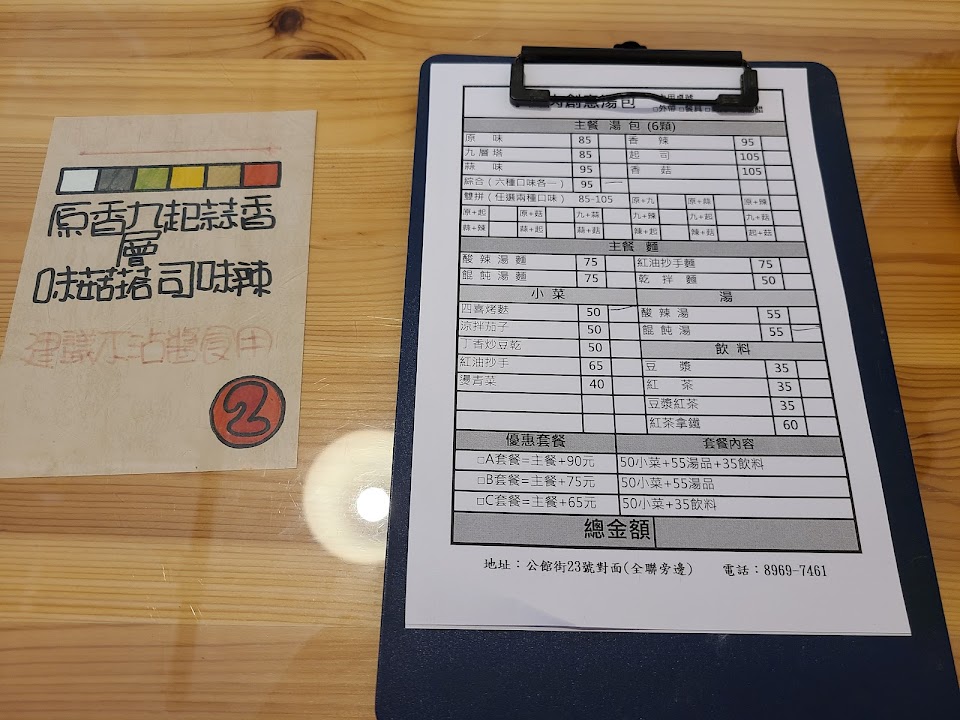 原香九起蒜香
層
味菇塔司味辣
建議不沾醬食用
2
創意湯包
□外帶 □餐具
主餐 湯 包 (6顆)
原 味 85 香 辣 95
九層塔 85 起 司 105
蒜 味 95 香 菇 105
綜合(六種口味各一) 95
雙拼(任選兩種口味) 85-105 原+九 原+蒜 原+辣
原+起 原+菇 九+蒜 九+辣 九+起 九+菇
蒜+辣 蒜+起 蒜+菇 辣+起 辣+菇 起+菇
主餐 麵
酸辣湯麵 75 紅油抄手麵 75
餛飩湯麵 75 乾拌麵 50
小菜 湯
四喜烤麩 50 酸辣湯 55
涼拌茄子 50 餛飩湯 55
丁香炒豆乾 50 飲料
紅油抄手 65 豆 漿 35
燙青菜 40 紅 茶 35
豆漿紅茶 35
紅茶拿鐵 60
優惠套餐 套餐內容
□A套餐=主餐+90元 50小菜+55湯品+35飲料
□B套餐=主餐+75元 50小菜+55湯品
□C套餐=主餐+65元 50小菜+35飲料
總金額
地址:公館街23號對面(全聯旁邊) 電話:8969-7461